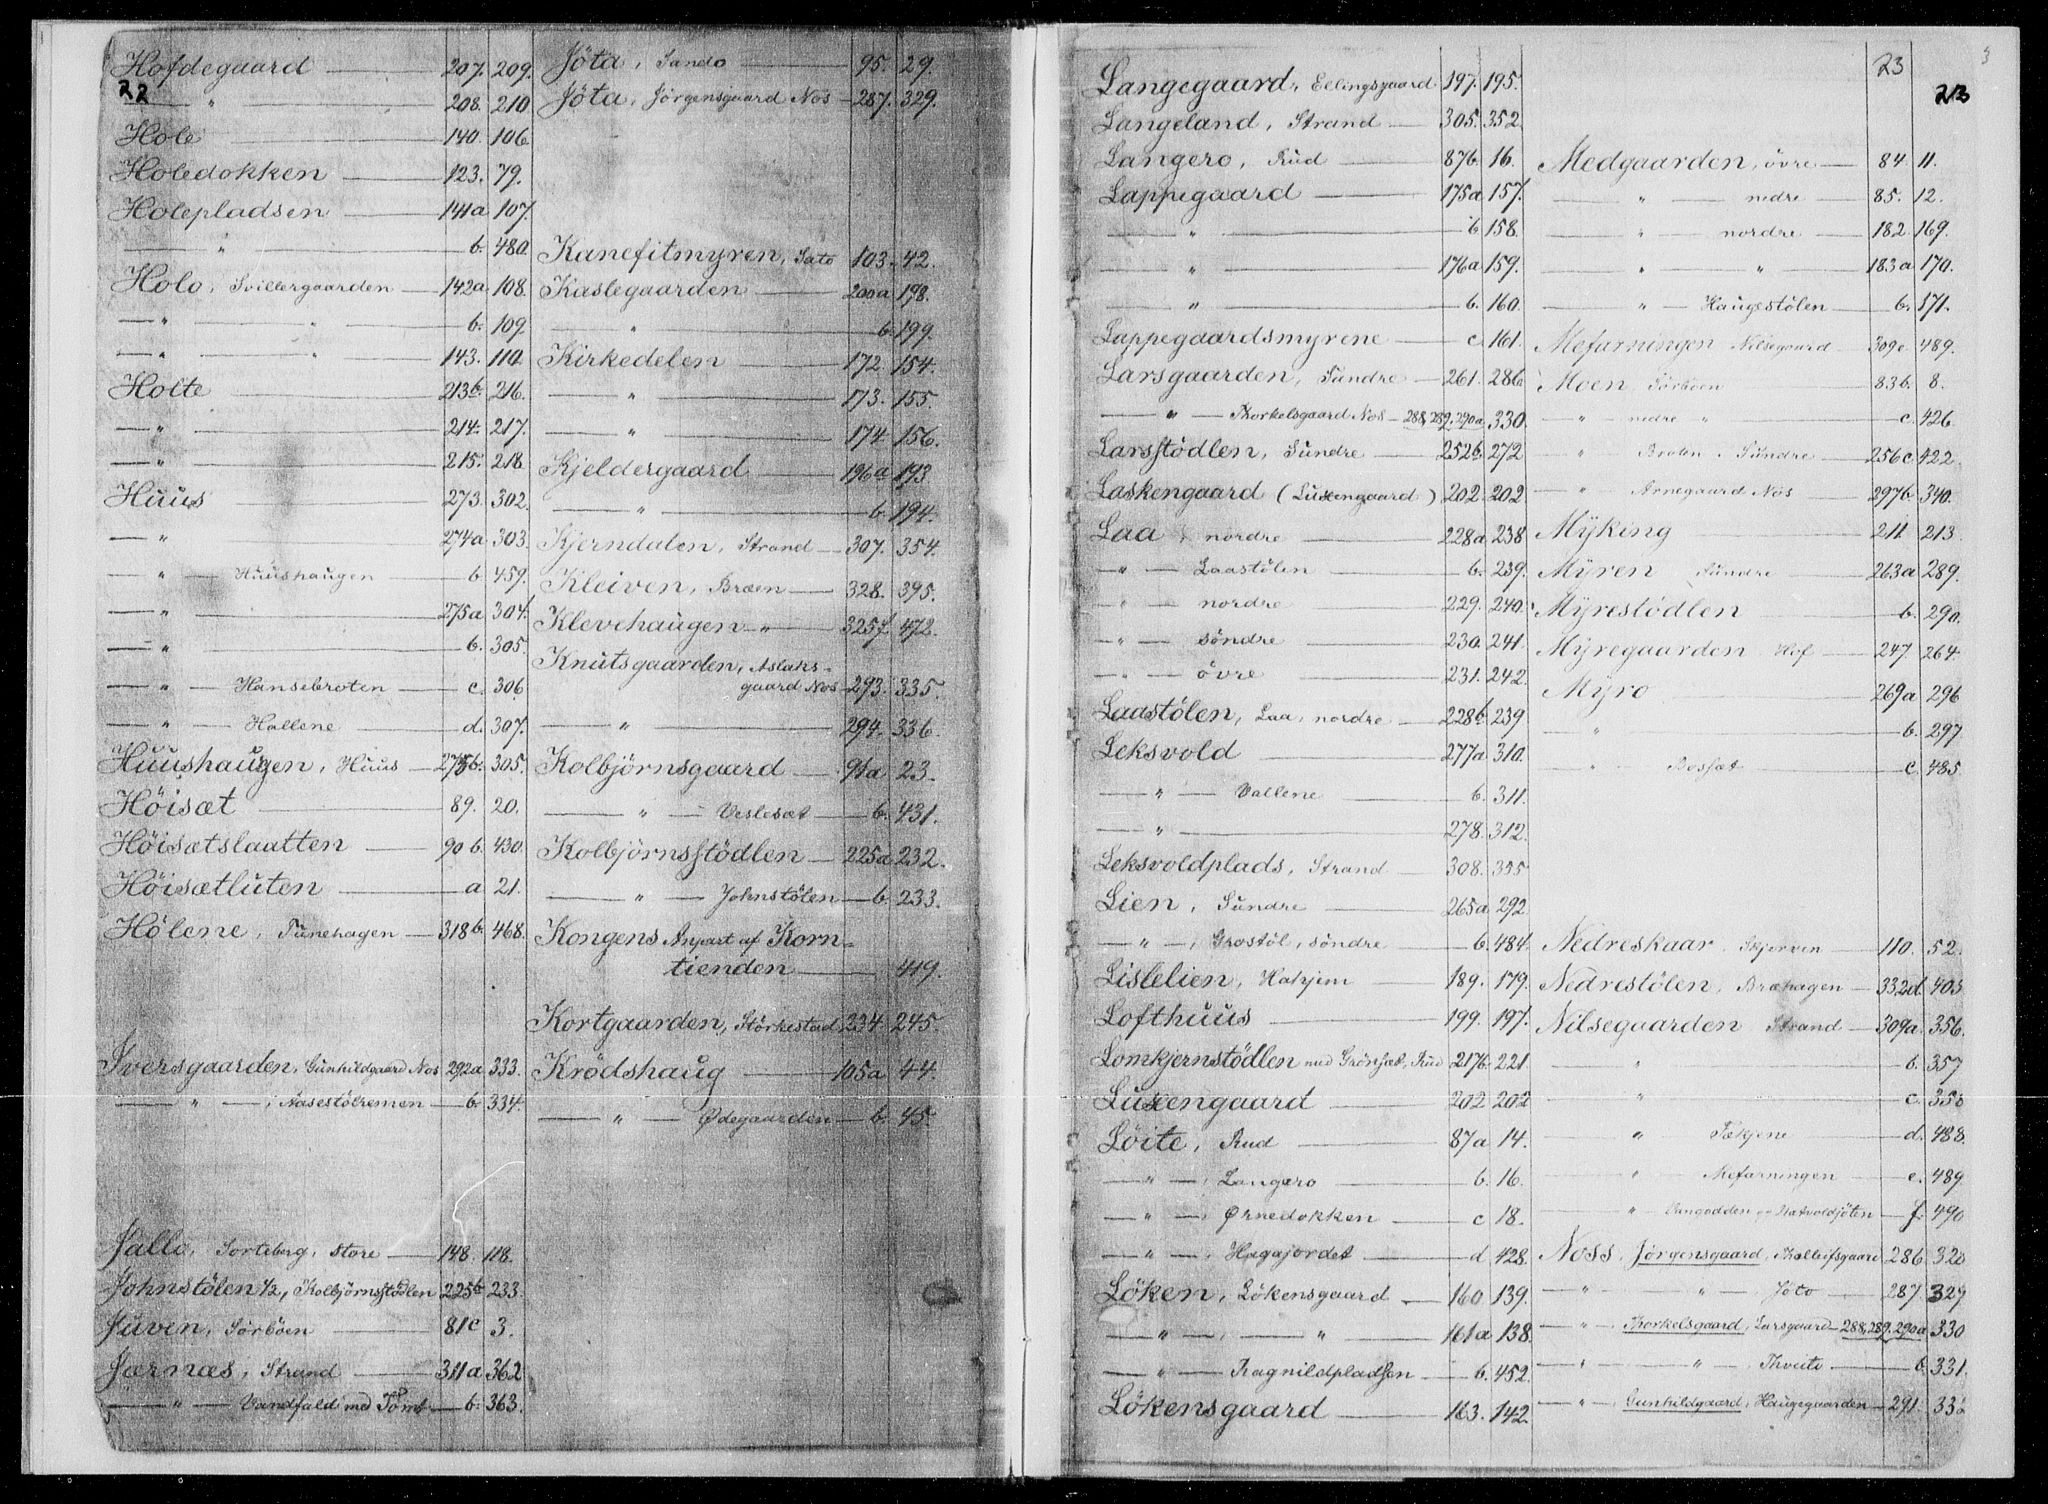 22
Hofdegaard — 207. 209.
— " — 208. 210.
Hole — 140. 106.
Holedokken — 123. 79.
Holepladsen — 141a 107.
— " — b. 480.
Holo, Svillergaarden — 142a. 108.
— " — " — b. 109.
— " — " — 143. 110.
Holte — 213b. 216.
— " — 214. 217.
— " — 215. 218.
Huus — 273. 302.
— " — 274a. 303.
— " — Huushaugen — b. 459.
— " — 275a 304.
— " — b. 305.
— " — Hansebroten — c. 306
— " — Hallene — d. 307.
Huushaugen, Huus — 275b. 305.
Höisæt — 89. 20.
Höisætslaatten — 90 b. 430.
Höisætluten — a 21.
Hölene, Tunehagen — 318b. 468.
Iversgaarden, Gunhildgaard Nos 292a 333.
— " —, Aasestölremen — b. 334.
Jallo, Sorteberg, store — 148. 118.
Johnstölen ½, Kolbjörnsstödlen 225b. 233.
Juven, Sörböen — 81c 3.
Jærnæs, Strand — 311a 362
— " — Vandfald med Tömt — b. 363.
Jöta, Sando — 95. 29.
Jöta, Jörgensgaard Nos — 287. 329.
Kanefitmyren, Sato 103. 42.
Kaslegaarden — 200a 198.
— " — b. 199.
Kirkedelen — 172. 154.
— " — 173. 155.
— " — 174. 156.
Kjeldergaard — 196a 193
— " — b. 194.
Kjerndalen, Strand — 307. 354.
Kleiven, Bræen — 328. 395.
Klevehaugen — " — 325f. 472.
Knutsgaarden, Aslaks-
gaard Nos — 293. 335.
— " — 294. 336.
Kolbjörnsgaard — 91a 23.
— " — Veslesæt — b. 431.
Kolbjörnsstödlen — 225a 232.
— " — Johnstölen — b. 233.
Kongens Anpart af Korn-
tienden — 419.
Kortgaarden, Störkestad 234. 245.
Krödshaug — 105a 44.
— " — Ødegaarden — b. 45.
23
23
Langegaard, Ellingsgaard 197. 195.
Langeland, Strand — 305. 352.
Langero, Rud — 87b. 16.
Lappegaard — 175a 157.
— " — b. 158.
— " — 176a 159.
— " — b. 160.
Lappegaardsmyrene — c. 161.
Larsgaarden, Sundre — 261. 286.
— " — Thorkelsgaard Nos — 288, 289, 290a 330.
Larsstödlen, Sundre — 252b. 272
Laskengaard (Luxengaard) 202. 202
Laa, nordre — 228a. 238
— " — Laastölen — b. 239.
— " — nordre — 229. 240.
— " — söndre — 230. 241.
— " — övre — 231. 242.
Laastölen, Laa, nordre — 228b. 239
Leksvold — 277a 310.
— " — Vallene — b. 311.
— " — 278. 312.
Leksvoldplads, Strand — 308. 355
Lien, Sundre — 265a 292.
— " —, Grostöl, söndre — b. 484.
Lislelien, Hahjem — 189. 179.
Lofthuus — 199. 197.
Lomkjernstödlen med Grönsæt, Rud 217b. 221.
Luxengaard — 202 202
Löite, Rud — 87a 14.
— " —, Langero — b. 16.
— " —, Ørnedokken — c 18.
— " —, Hagajordet — d 428.
Löken, Lökensgaard — 160. 139.
— " — " — 161a 138.
— " — Ragnildpladsen — b. 452.
Lökensgaard — 163. 142
Medgaarden, övre — 84. 11.
— " — nedre — 85. 12.
— " — nordre — 182 169.
— " — " — 183a 170.
— " — Haugestölen — b. 171.
Mefarningen Nilsegaard 309e 489.
Moen Sörböen 83b. 8.
" nedre " — c. 426
" Broten, Sundre — 256c. 422.
— " Arnegaard Nos — 297b. 340.
Myking — 211. 213.
Myren Sundre — 263a 289.
Myrestödlen — b. 290.
Myregaarden Hof — 247. 264.
Myro — 269a 296
— " — b. 297
— " — Bossæt — c. 485
Nedreskaar, Skjerven — 110. 52.
Nedrestölen, Bræhagen — 332d. 405
Nilsegaarden Strand — 309a. 356.
— " — b. 357
— " — c. 358
— " — Tækjene — d. 488.
— " — Mefarningen — e. 489
— " — f. 490
Noss, Jørgensgaard, 286. 328
— " — " — Jöto — 287. 329
— " — Thorkelsgaard, Larsgaard — 288, 289, 290a 330
— " — " — Thveito — b. 331.
— " — Gunhildgaard, Haugegaarden — 291. 332